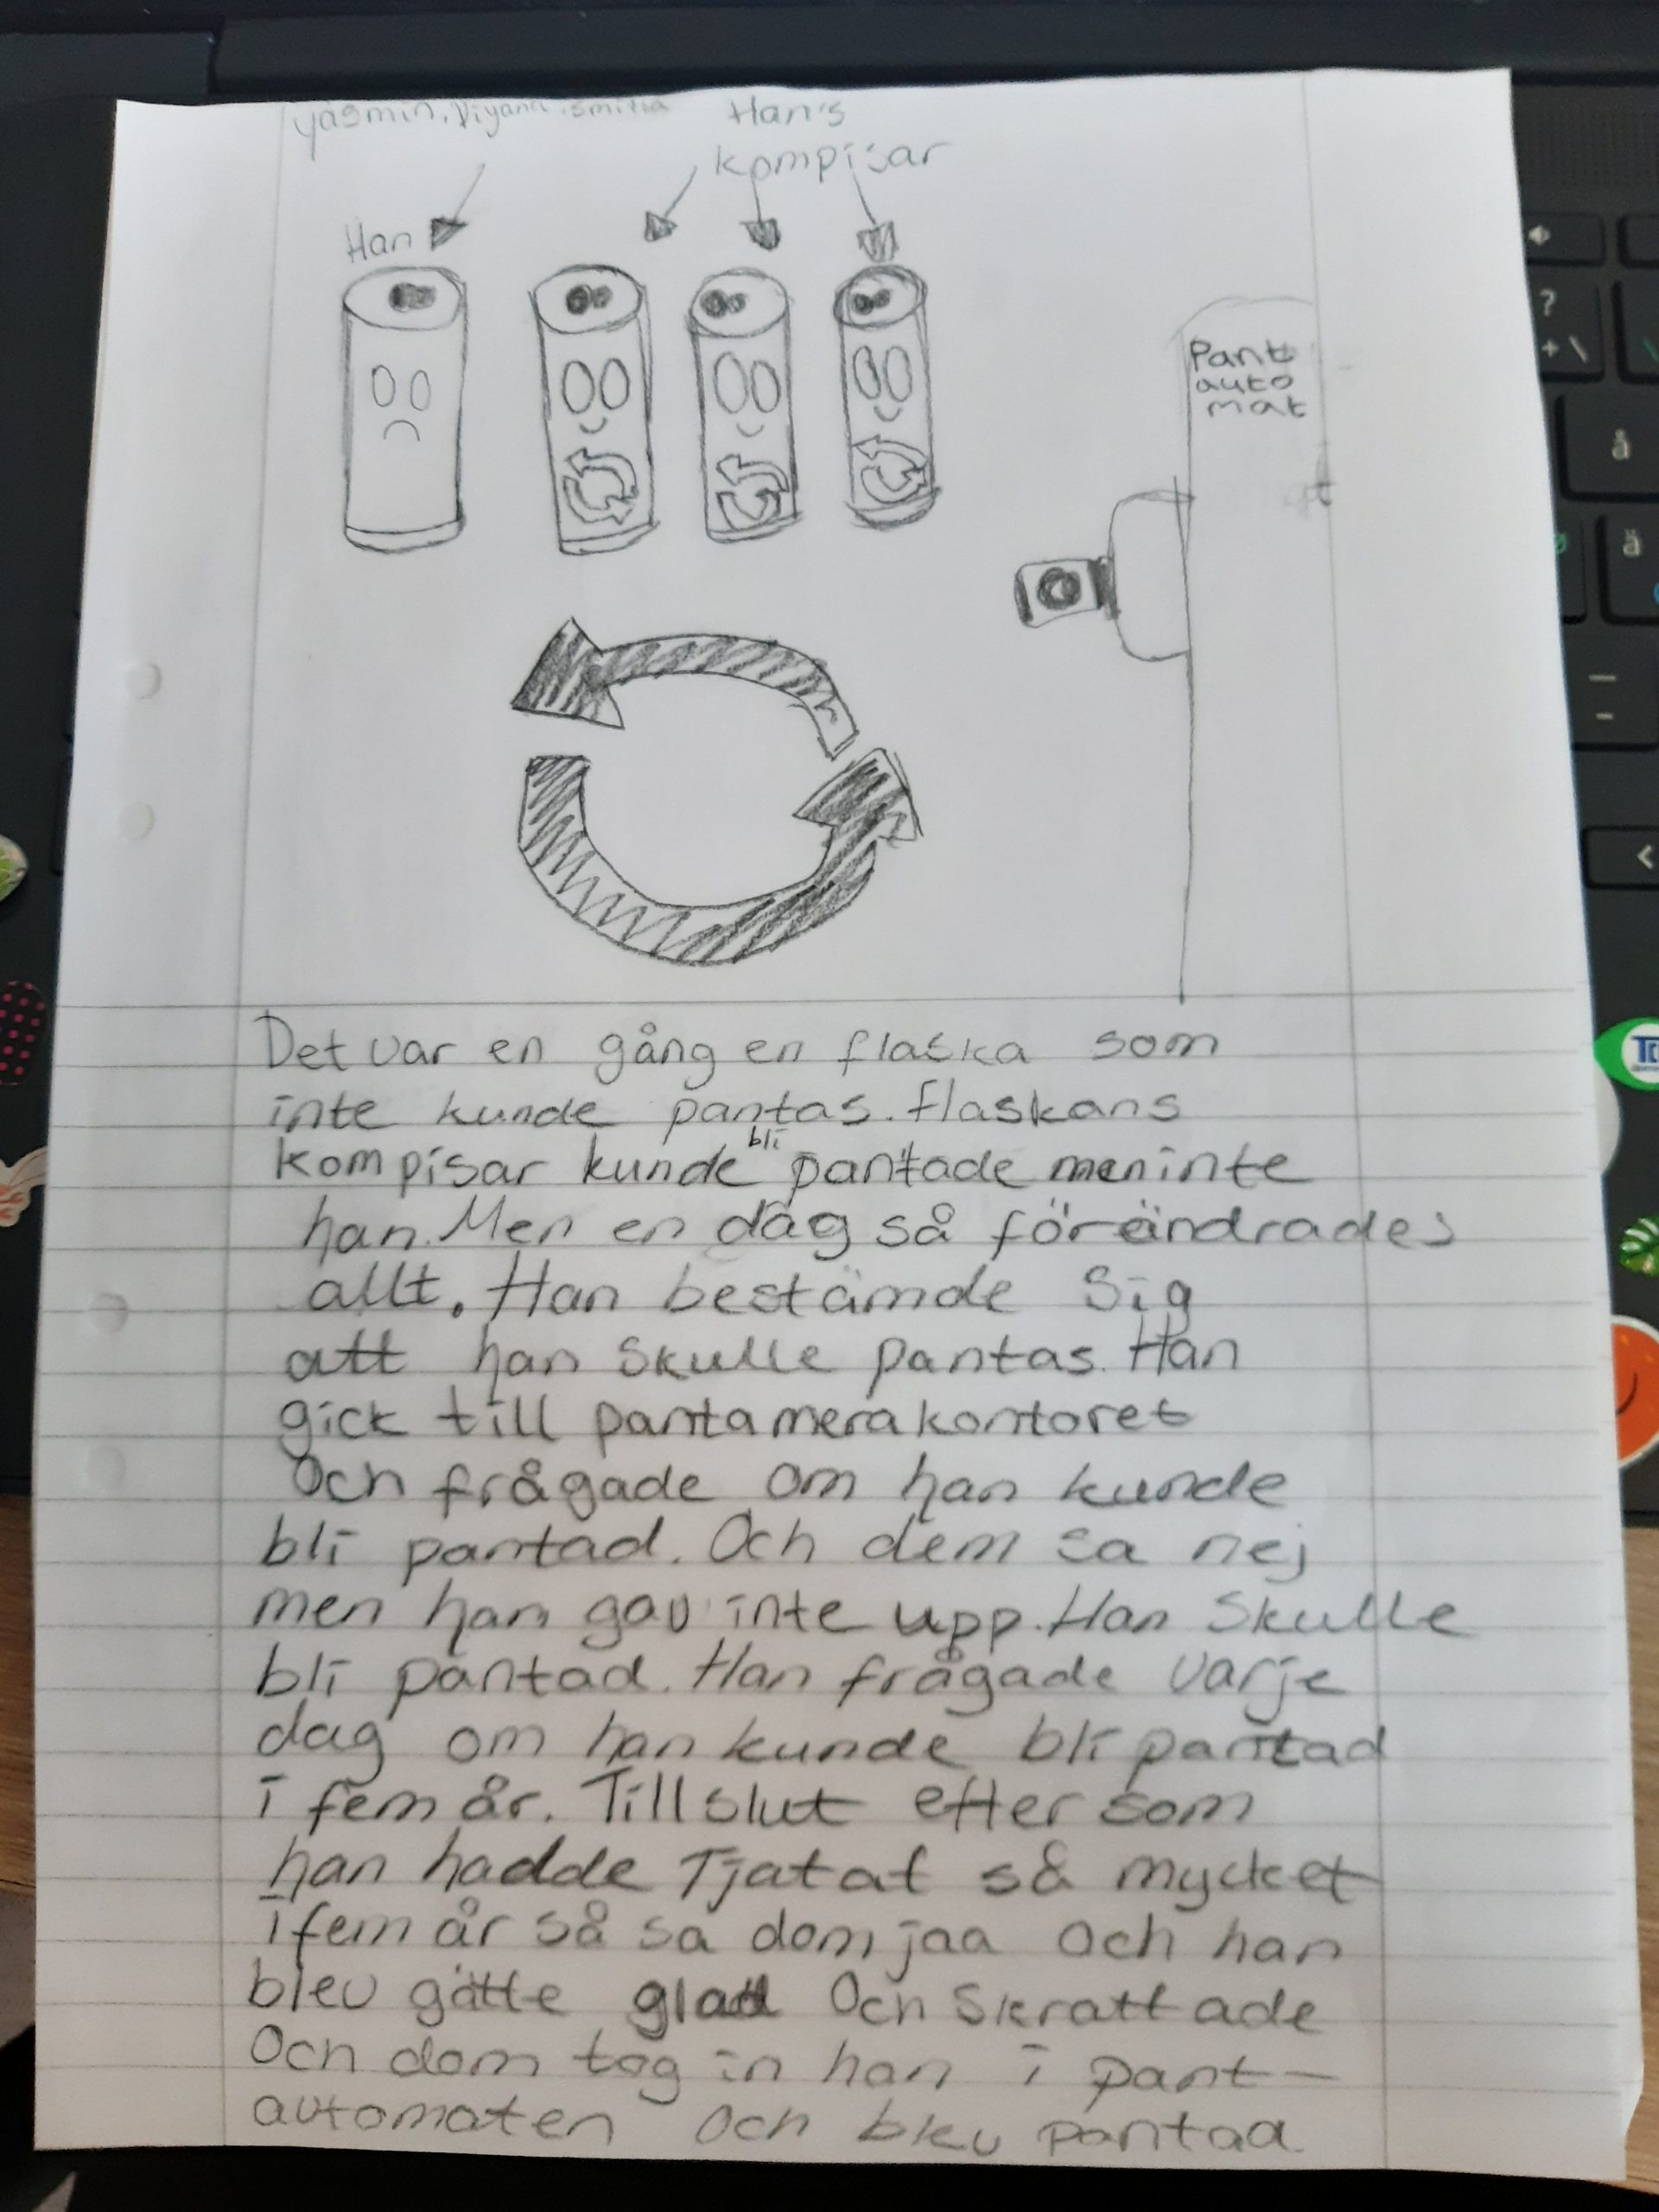 yasmin, Diyana, smilla
Han's
kompisar
Han
Pant
auto
mat
Det var en gång en flaska som
inte kunde pantas. flaskans
kompisar kunde bli pantade men inte
han. Men en dag så förändrades
allt. Han bestämde sig
att han skulle pantas. Han
gick till pantamera kontoret
Och frågade om han kunde
bli pantad. Och dem sa nej
men han gav inte upp. Han Skulle
bli pantad. Han frågade varje
dag om han kunde bli pantad
i fem år. Till slut efter som
han hadde Tjatat så mycket
i fem år så sa dom jaa Och han
blev gätte glad Och Skrattade
Och dom tog in han i pant-
automaten Och blev pantad.